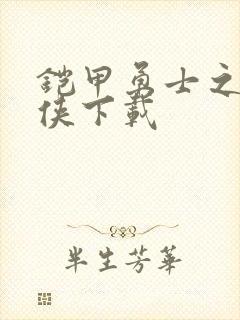 铠甲勇士之
侠下载
半生芳华